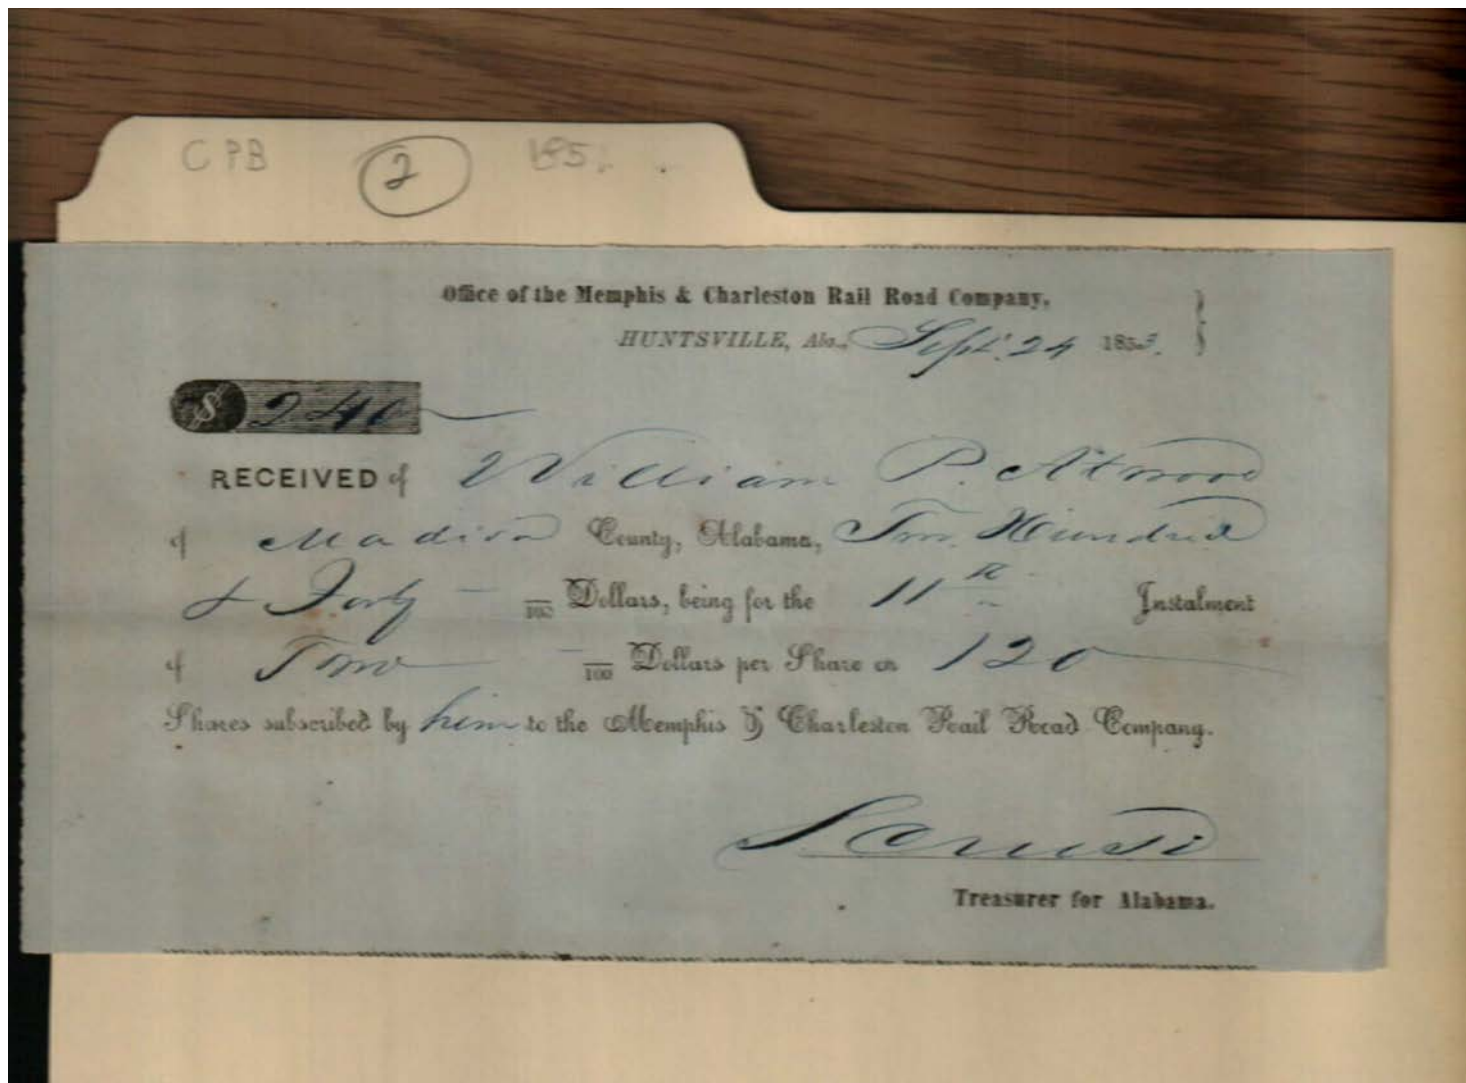 CPB 2 185
Office of the Memphis & Charleston Rail Road Company,
HUNTSVILLE, Ala., Sept. 24 1853.
$ 240
RECEIVED of William P. Atwood
of Madison County, Alabama, Two Hundred
& Forty — /100 Dollars, being for the 11th Instalment
of Two — /100 Dollars per Share on 120
Shares subscribed by him to the Memphis & Charleston Rail Road Company.
Treasurer for Alabama.